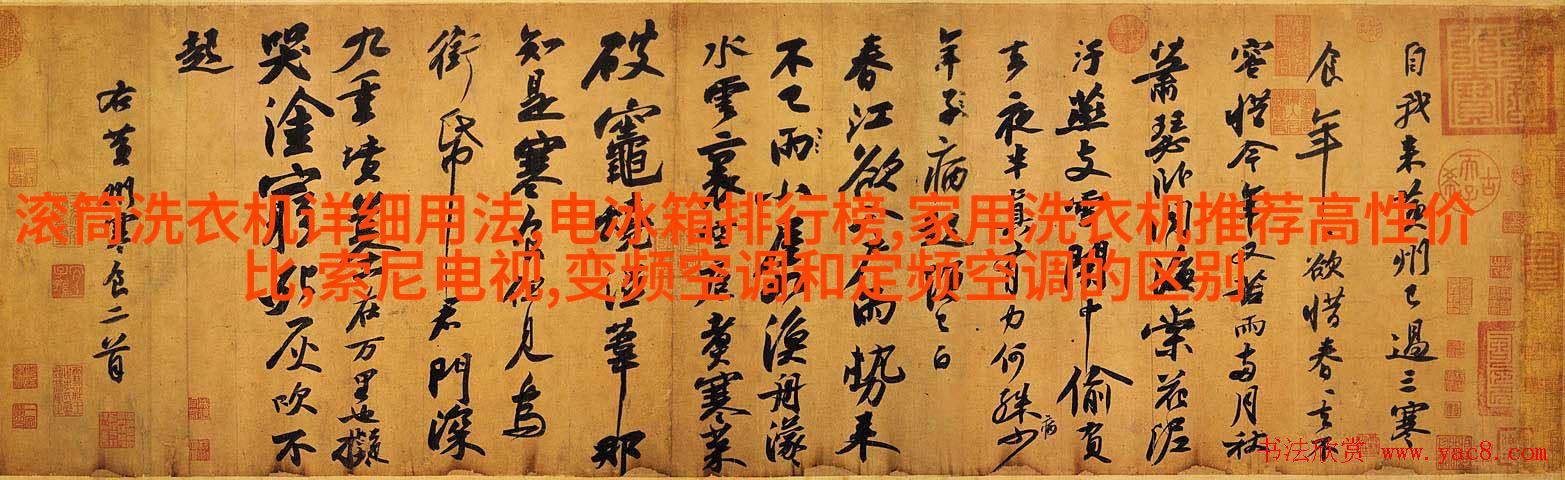 滚筒洗衣机详细用法,电冰箱排行榜,家用洗衣机推荐高性价
比,索尼电视,变频空调和定频空调的区别
自我来黄州已過三寒
食年欲惜春去不
容惜今年又苦雨兩月秋
蕭瑟卧聞海棠花泥
汙燕支雪闇中偷負
去夜半真有力何殊少
年子病起須已白
春江欲入户雨勢来
不已雨小屋如漁舟濛
水雲裏空庖煮寒菜
破竈燒濕葦那
知是寒食但見烏
銜帋君門深
九重墳墓在万里也擬
哭塗窮死灰吹不
起
右黄州寒食二首
书法欣赏 www.yac8.com